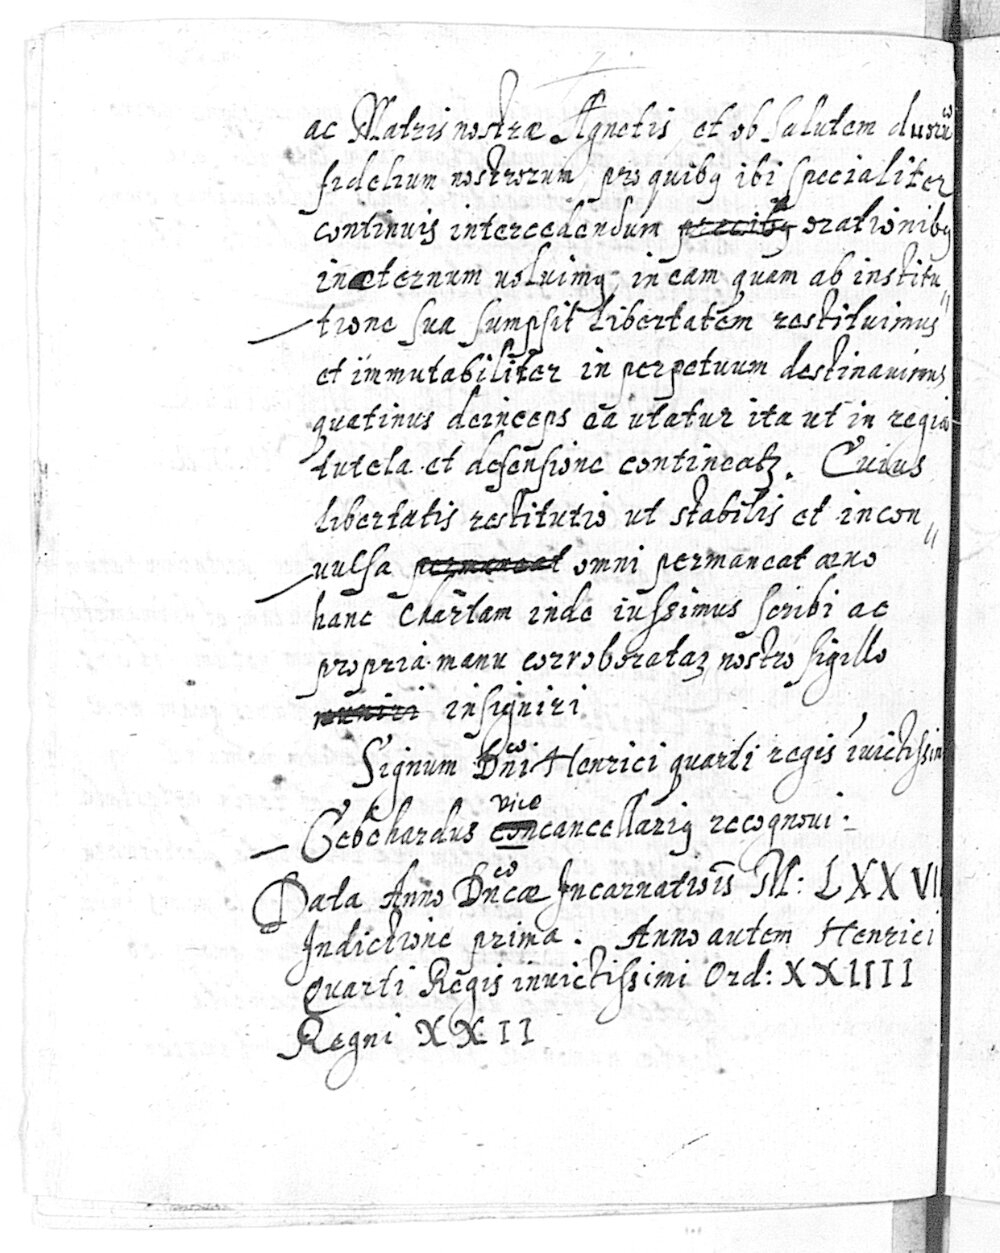 ac Matris nostræ Agnetis et ob salutem duorū
fidelium nostrorum pro quibq ibi specialiter
continuis intercedendum precibq orationibq
inæternum voluimq in eam quam ab institu„
tione sua sumpsit libertatem restituimus
et immutabiliter in perpetuum destinavimus
quatinus deinceps ea utatur ita ut in regia
tutela et defensione contineatz. Cuius
libertatis restitutio ut stabilis et incon„
vulsa permaneat omni permaneat ævo
hanc Chartam inde iussimus scribi ac
propria manu corroborataz nostro sigillo
insigniri
Signum Dñi Henrici quarti regis ivictissim
Gebehardus vice concancellariq recognovi.
Data Anno Dñcæ Incarnatiōis M: LXXVII
Indictione prima. Anno autem Henrici
Quarti Regis invictissimi Ord: XXIIII
Regni XXII